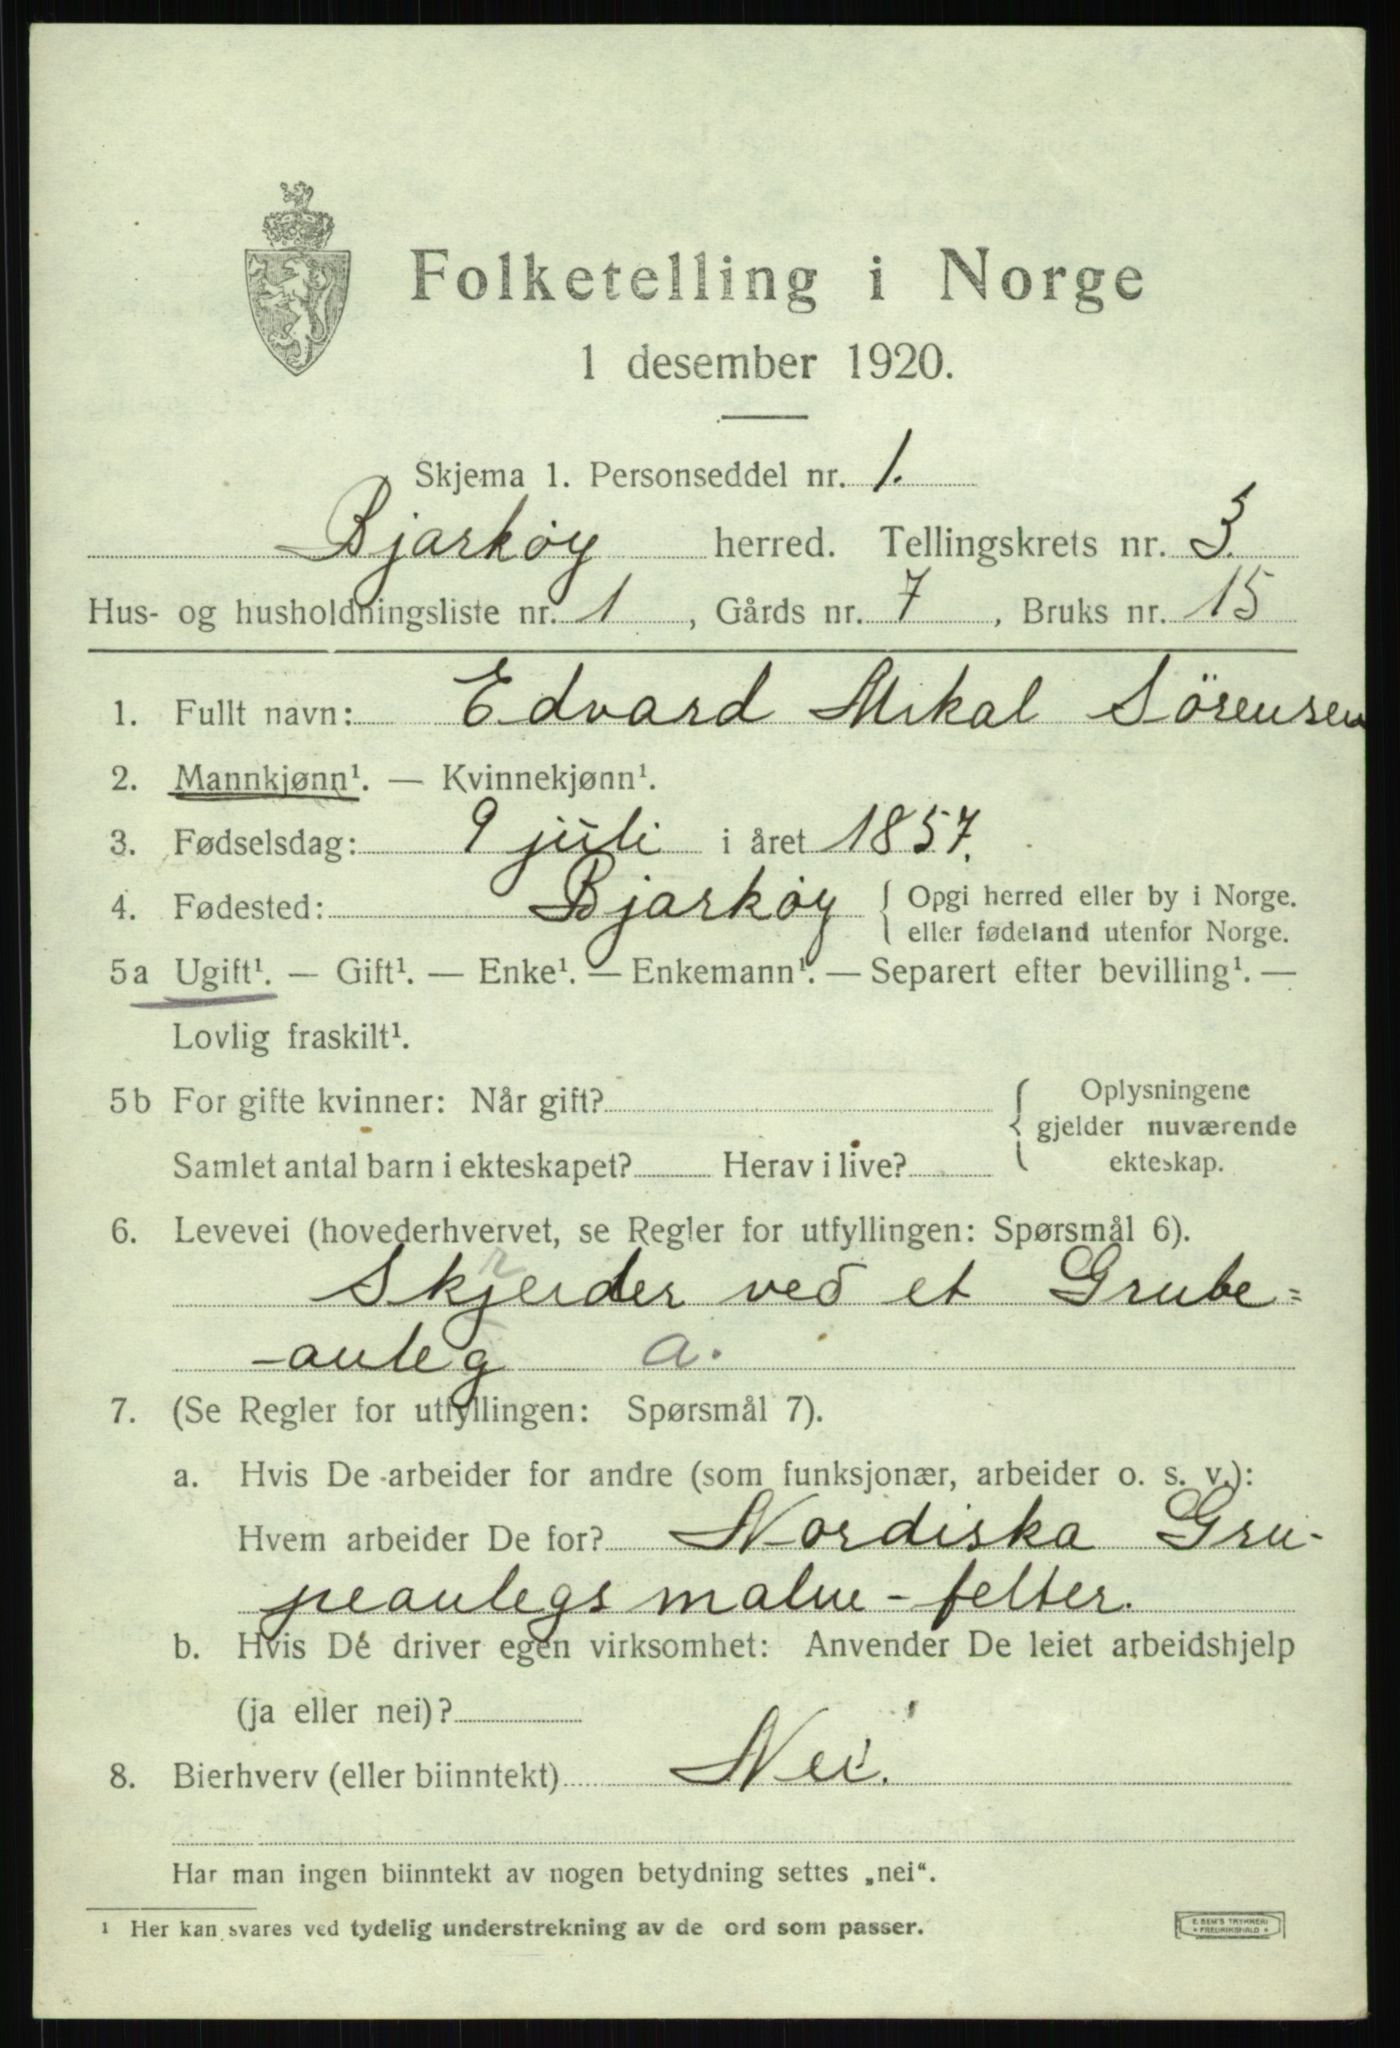 Folketelling i Norge
1 desember 1920.
Skjema 1. Personseddel nr. 1.
Bjarkøy herred. Tellingskrets nr. 3.
Hus- og husholdningsliste nr. 1, Gårds nr. 7, Bruks nr. 15
1. Fullt navn: Edvard Mikal Sörensen
2. Mannkjønn¹. — Kvinnekjønn¹.
3. Fødselsdag: 9 juli i året 1857.
4. Fødested: Bjarkøy { Opgi herred eller by i Norge.
eller fødeland utenfor Norge.
5a Ugift¹. — Gift¹. — Enke¹. — Enkemann¹. — Separert efter bevilling¹. —
Lovlig fraskilt¹.
5b For gifte kvinner: Når gift? { Oplysningene
gjelder nuværende
Samlet antal barn i ekteskapet? Herav i live? ekteskap.
6. Levevei (hovederhvervet, se Regler for utfyllingen: Spørsmål 6).
Skjerder ved et Grube=
-anleg a.
7. (Se Regler for utfyllingen: Spørsmål 7).
a. Hvis De arbeider for andre (som funksjonær, arbeider o. s. v.):
Hvem arbeider De for? Nordiska Gru-
peanlegs malm-felter.
b. Hvis De driver egen virksomhet: Anvender De leiet arbeidshjelp
(ja eller nei)?
8. Bierhverv (eller biinntekt) Nei.
Har man ingen biinntekt av nogen betydning settes „nei“.
¹ Her kan svares ved tydelig understrekning av de ord som passer.
E. SEM'S TRYKKERI
FREDRIKSHALD